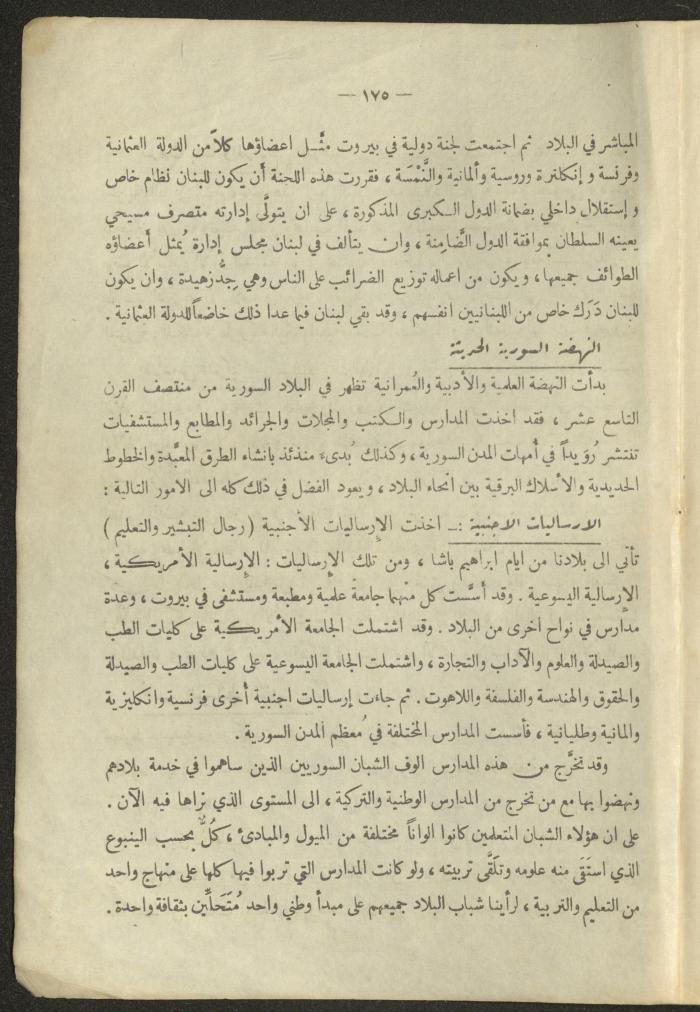 — ١٧٥ —
المباشر في البلاد ثم اجتمعت لجنة دولية في بيروت مثَّل اعضاؤها كلاً من الدولة العثمانية
وفرنسة وإنكلترة وروسية وألمانية والنَّمْسَة ، فقررت هذه اللجنة أَن يكون للبنان نظام خاص
وإستقلال داخلي بضمانة الدول الكبرى المذكورة ، على ان يتولَّى إدارته متصرف مسيحي
يعينه السلطان بموافقة الدول الضَّامِنة ، وان يتألف في لبنان مجلس إدارة يُمثل أَعضاؤه
الطوائف جميعها ، ويكون من اعماله توزيع الضرائب على الناس وهي جِدُّ زهيدة ، وان يكون
للبنان دَرَك خاص من اللبنانيين انفسهم ، وقد بقي لبنان فيما عدا ذلك خاضعاً للدولة العثمانية .
النهضة السورية الحديثة
بدأت النهضة العلمية والأدبية والعُمرانية تظهر في البلاد السورية من منتصف القرن
التاسع عشر ، فقد اخذت المدارس والكتب والمجلات والجرائد والمطابع والمستشفيات
تنتشر رُوَيداً في أمهات المدن السورية ، وكذلك بُدىء منذئذ بانشاء الطرق المعبَّدة والخطوط
الحديدية والأسلاك البرقية بين انحاء البلاد ، ويعود الفضل في ذلك كله الى الامور التالية :
الارساليات الاجنبية :ـ اخذت الإرساليات الأجنبية ( رجال التبشير والتعليم )
تأتي الى بلادنا من ايام ابراهيم باشا ، ومن تلك الإرساليات : الإرسالية الأمريكية ،
الإرسالية اليسوعية . وقد أَسَّست كل منهما جامعة علمية ومطبعة ومستشفى في بيروت ، وعدة
مدارس في نواح اخرى من البلاد . وقد اشتملت الجامعة الأمريكية على كليات الطب
والصيدلة والعلوم والآداب والتجارة ، واشتملت الجامعة اليسوعية على كليات الطب والصيدلة
والحقوق والهندسة والفلسفة واللاهوت . ثم جاءت إرساليات اجنبية أُخرى فرنسية وانكليزية
والمانية وطليانية ، فأسست المدارس المختلفة في مُعظم المدن السورية .
وقد تخرَّج من هذه المدارس الوف الشبان السوريين الذين ساهموا في خدمة بلادهم
ونهضوا بها مع من تخرج من المدارس الوطنية والتركية ، الى المستوى الذي نراها فيه الآن .
على ان هؤلاء الشبان المتعلمين كانوا الواناً مختلفة من الميول والمبادئ ، كُلٌّ بحسب الينبوع
الذي استَقَى منه علومه وتلَقَّى تربيته ، ولو كانت المدارس التي تربوا فيها كلها على منهاج واحد
من التعليم والتربية ، لرأينا شباب البلاد جميعهم على مبدأ وطني واحد مُتَحَلِّين بثقافة واحدة .